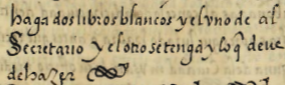 haga dos libros blancos y el vno de al
Secretario y el otro se tenga y lo q̃ deue
de hazer